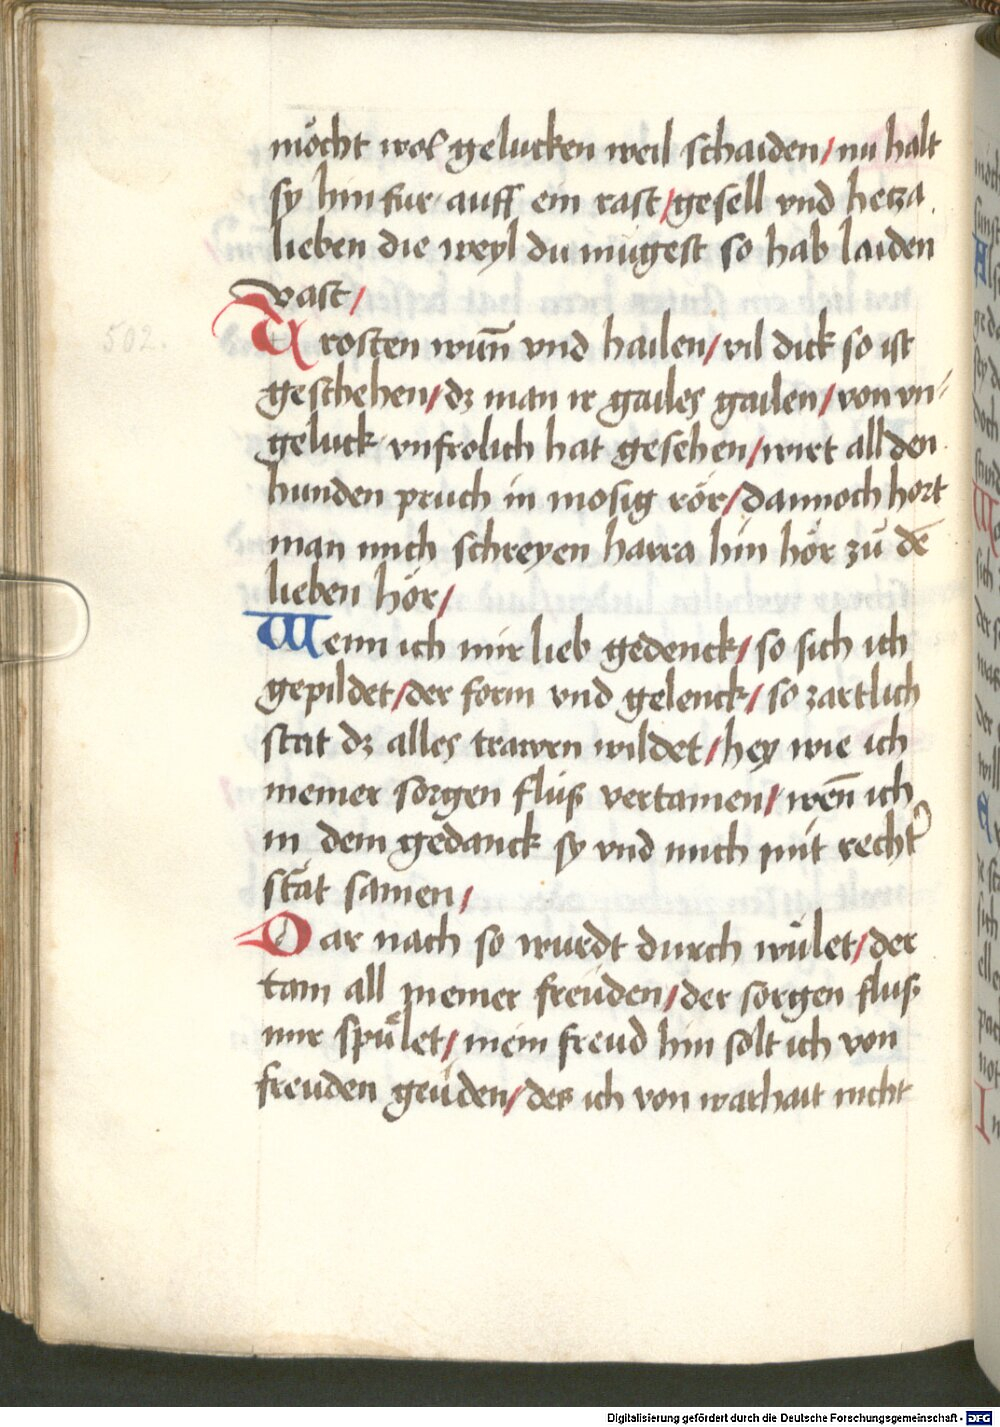 möcht wol gelucken weil schaiden/ nu halt
sy hin fur auff ein rast/ gesell vnd hetza
lieben die weyl du mugest so hab laiden
vast/
502.
Trosten wun̄ vnd hailen/ vil dick so ist
geschehen/ dz man ir gailes gailen/ von vn-
geluck vnfrolich hat gesehen/ wirt all den
hunden pruch in mosig rör/ dannoch hort
man mich schreyen harra hin hör zů dē
lieben hör/
Wenn ich mir lieb gedenck/ so sich ich
gepildet/ der form vnd gelenck/ so zartlich
stat dz alles trawren wildet/ hey wie ich
meiner sorgen fluß vertamen/ wen̄ ich
in dem gedanck sy vnd mich mit recht'
stät samen/
Dar nach so wurdt durch wület/ der
tam all meiner freüden/ der sorgen fluß
mir spůlet/ mein freud hin solt ich von
freuden geüden/ des ich von warhait nicht
Digitalisierung gefördert durch die Deutsche Forschungsgemeinschaft - DFG